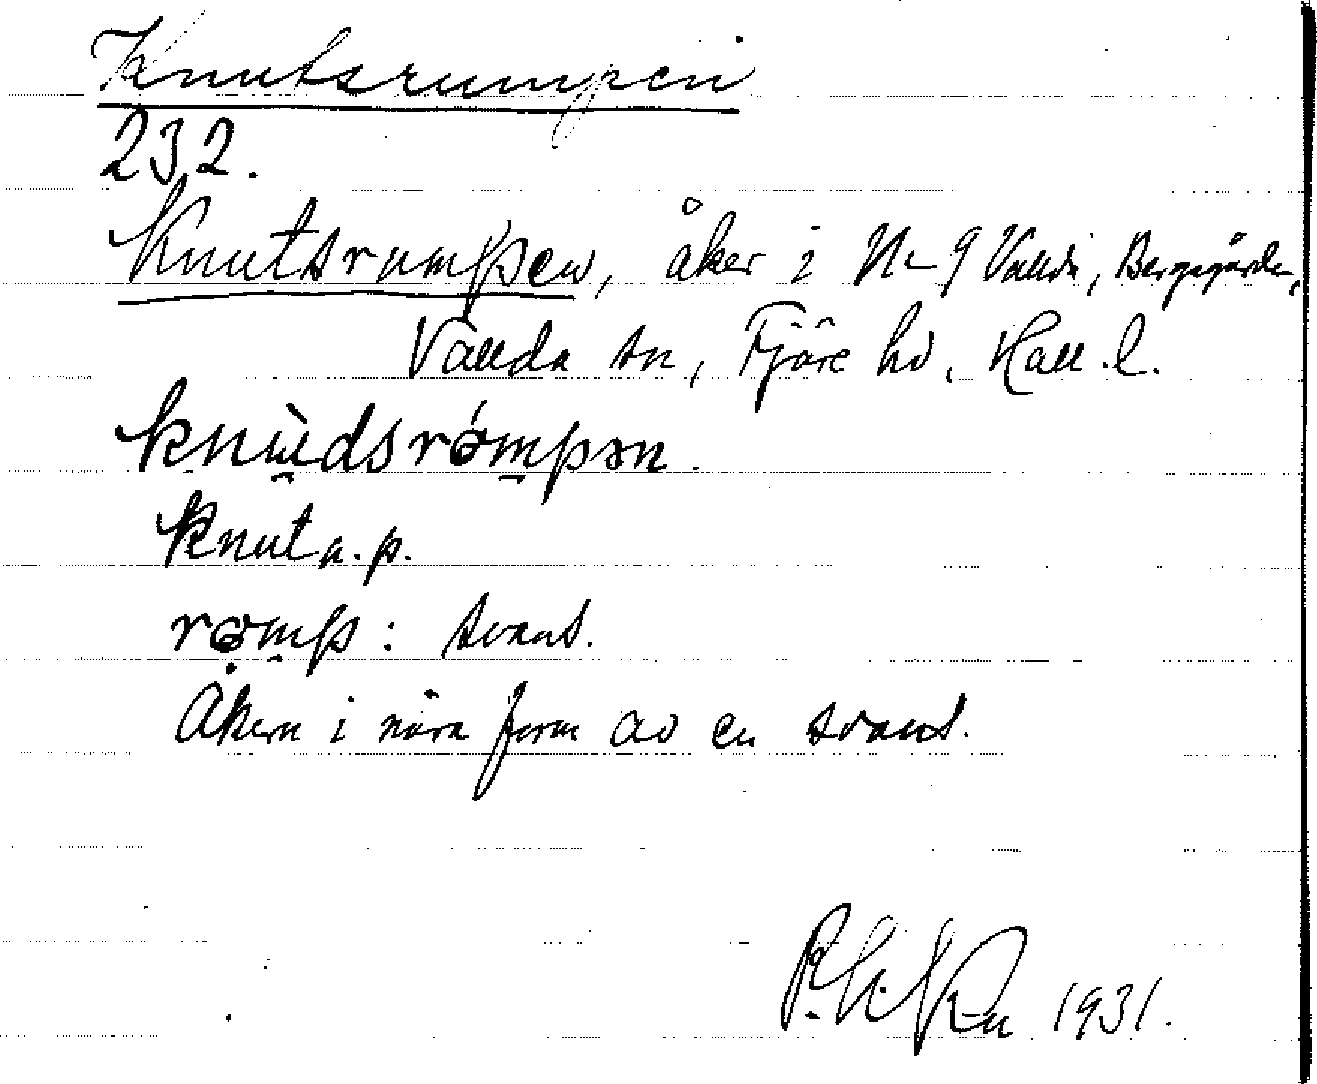 Knutsrumpen
232.
Knutsrumpen, åker i Nr 9 Vallda, Bergsgården,
Vallda sn, Fjäre hd, Hall. l.
knùdsrǿmpən.
Knut n. p.
rømp: svans.
Åkern i nära form av en svans.
1931.